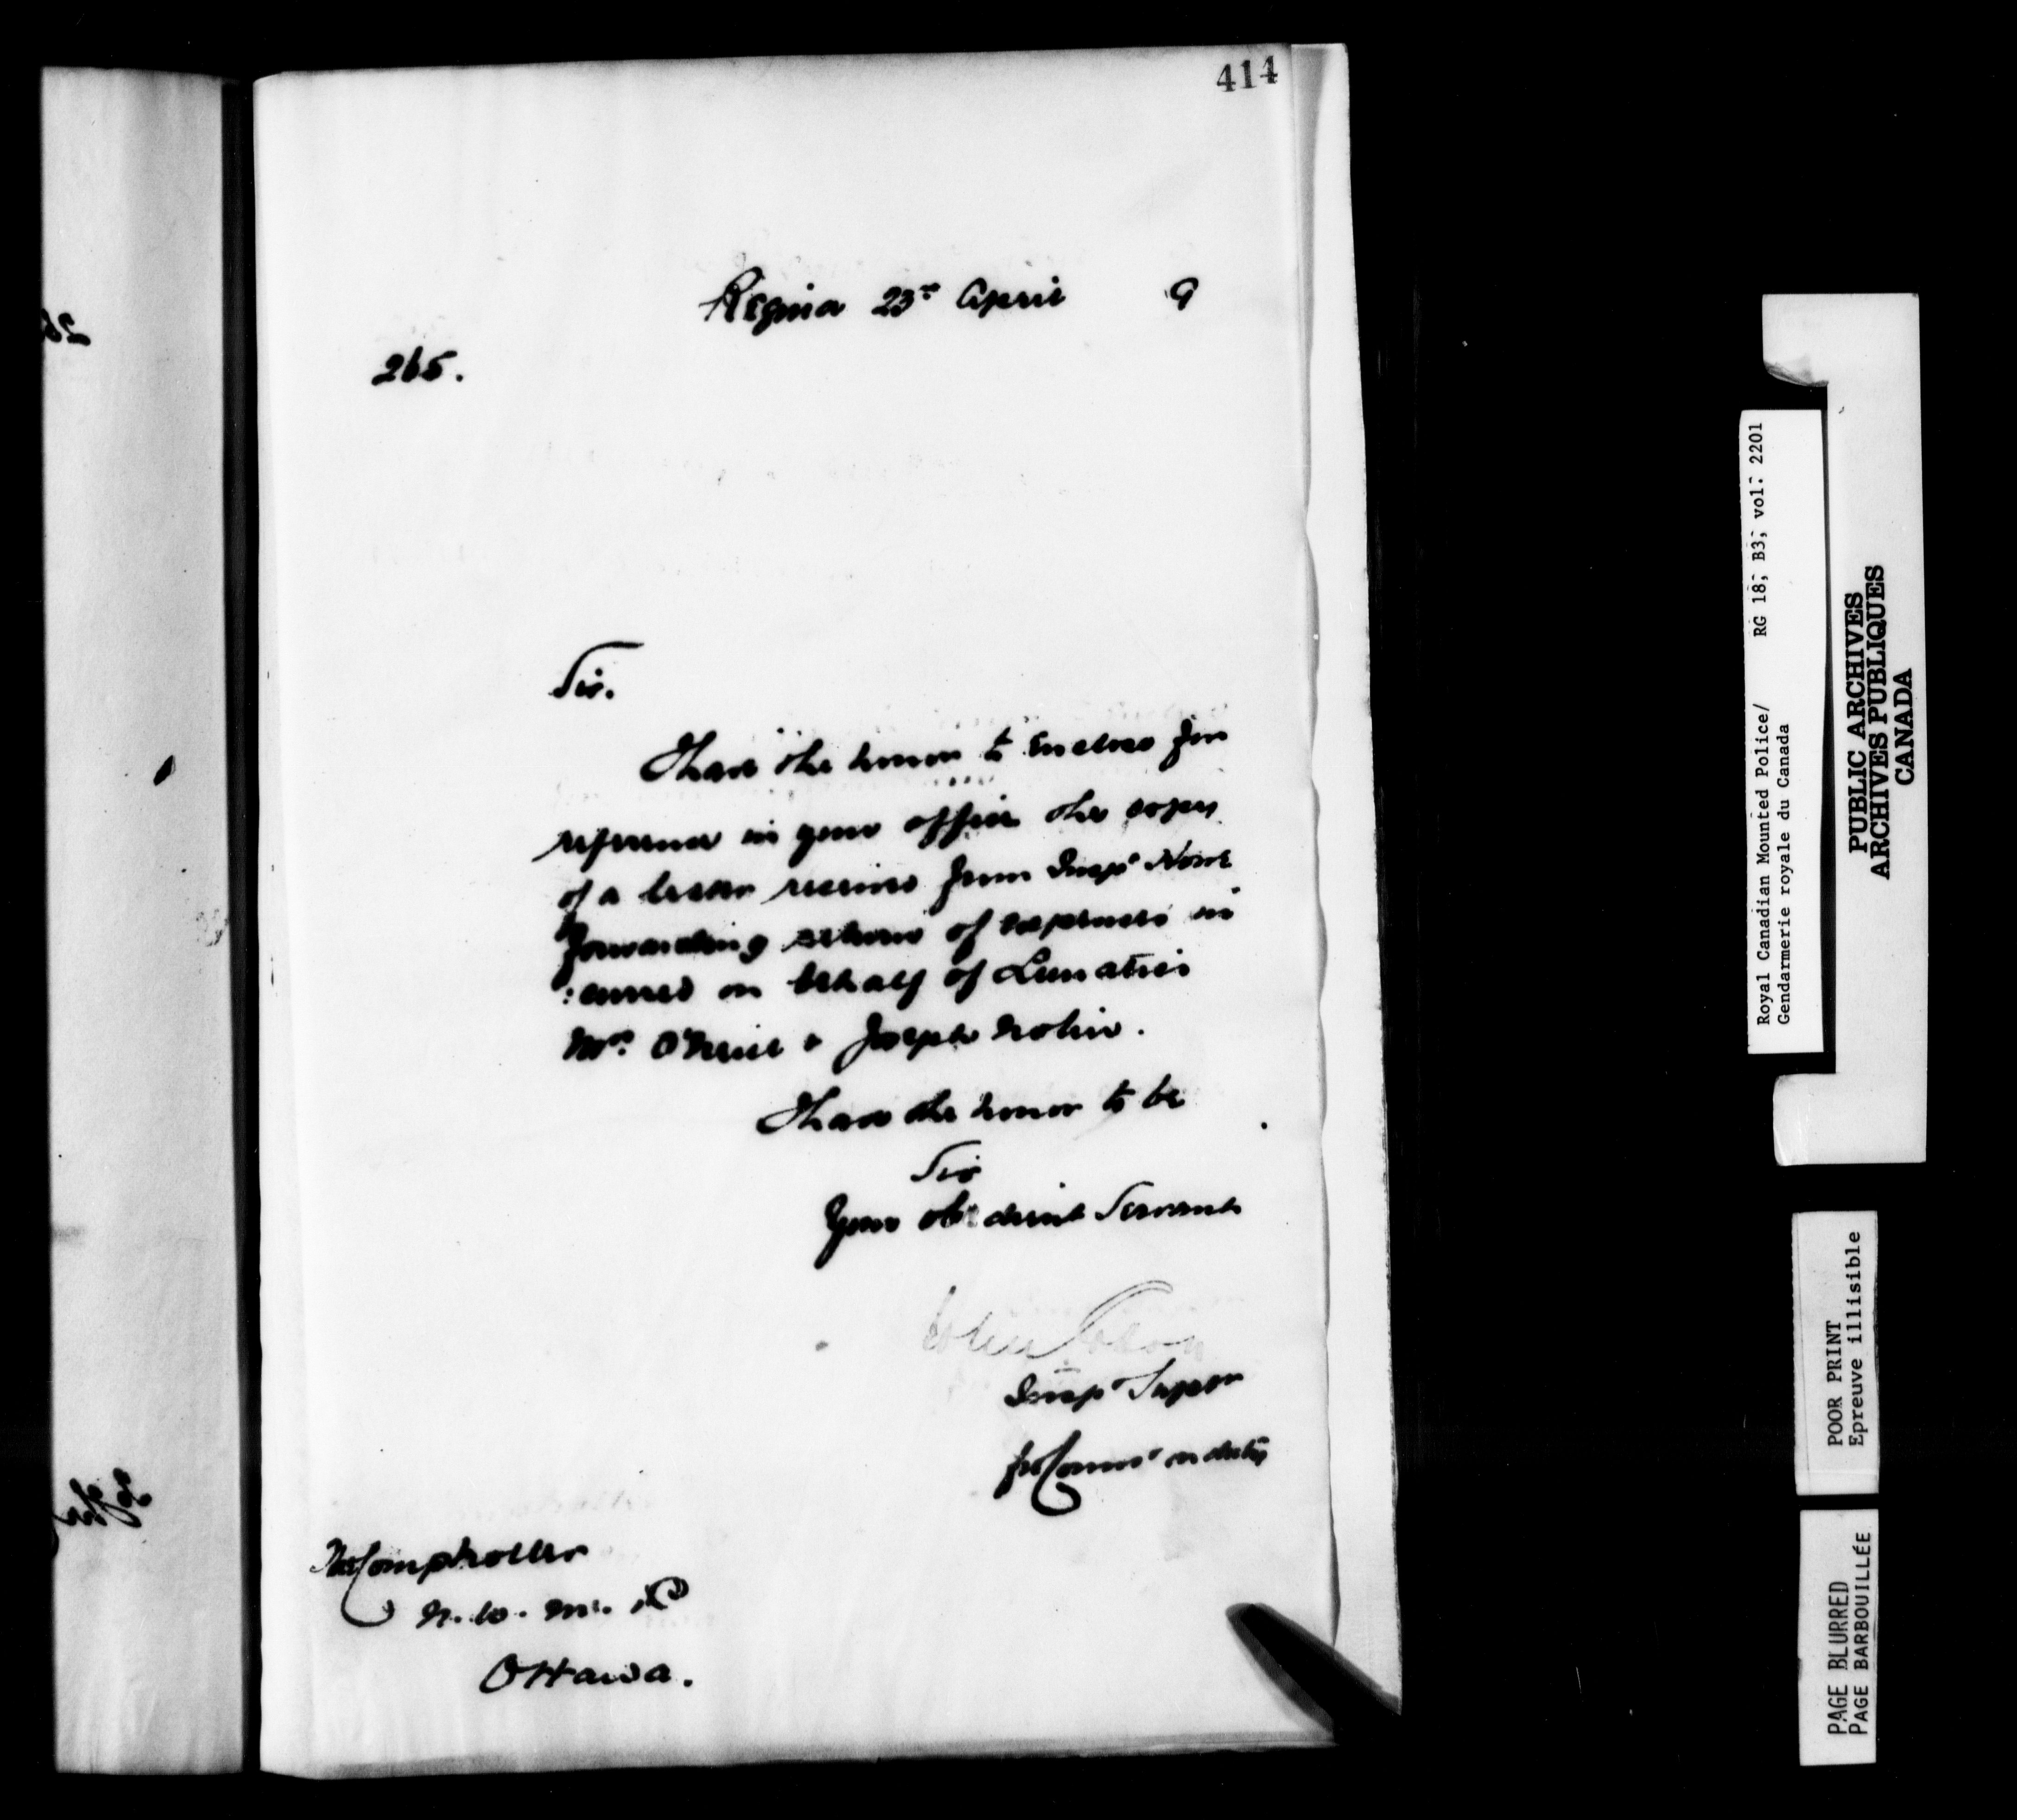 414
Regina 23rd April 9
265.
Sir.
I have the honor to enclose for
reference in your office the copy
of a letter received from Insp
forwarding return of expenses in
:curred on behalf of Lunatics
Mrs. O'Neill & Joseph
I have the honor to be
Sir
Your obedient Servant
Insp Super
for Commr on duty
The Comptroller
N. W. M. P
Ottawa.
Royal Canadian Mounted Police/ RG 18, B3, vol. 2201
Gendarmerie royale du Canada
PUBLIC ARCHIVES
ARCHIVES PUBLIQUES
CANADA
POOR PRINT
Epreuve illisible
PAGE BLURRED
PAGE BARBOUILLÉE